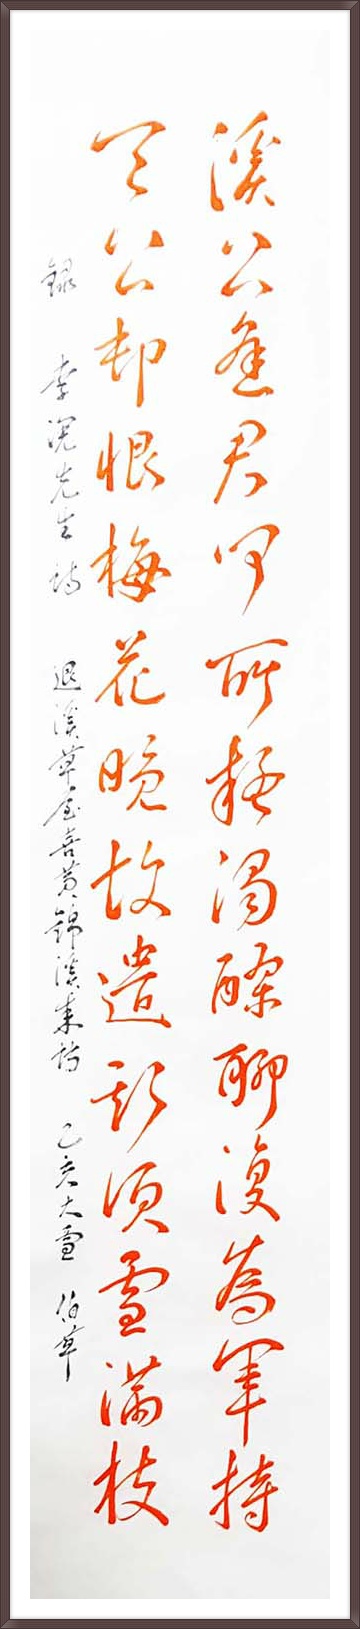 溪上逢君叩所疑濁醪聊復為君持
天公却恨梅花晚故遣斯須雪滿枝
錄 李滉先生詩 退溪草屋喜黃錦溪來訪 己亥大雪 伯草